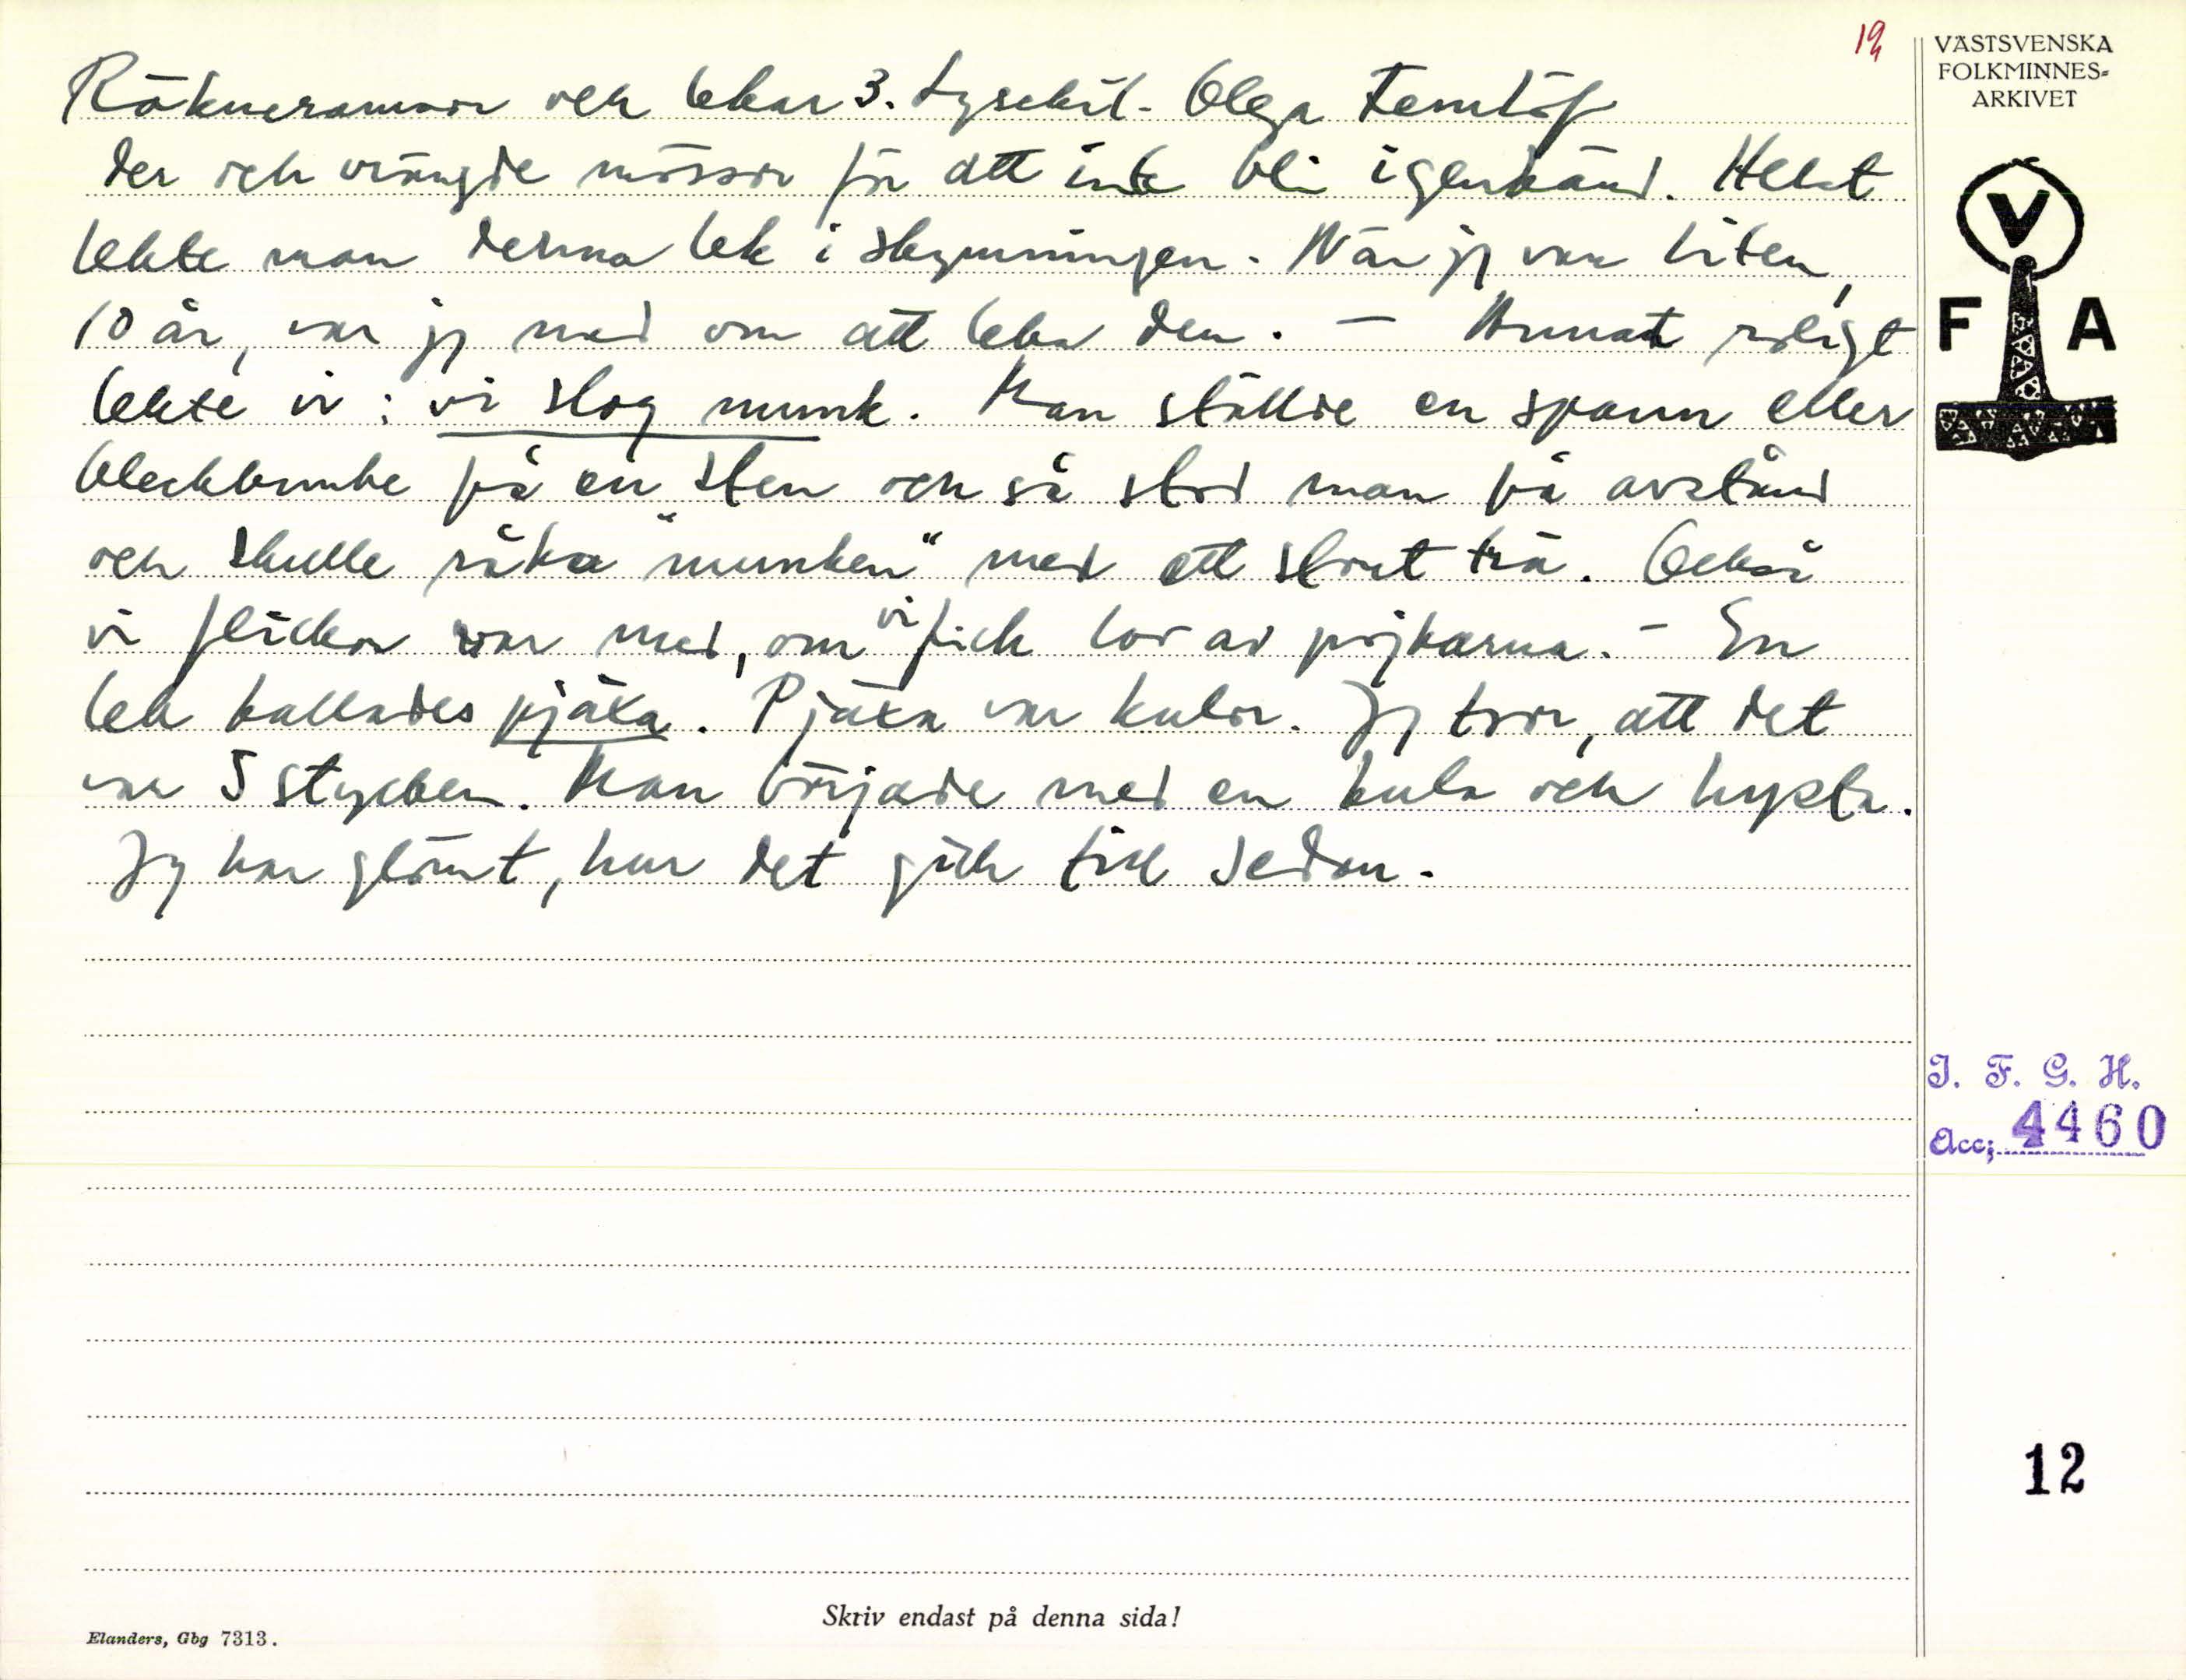 19
Räkneramsor och lekar 3. Lysekil. Olga
der och vrängde mössor för att inte bli igenkänd. Helst
lekte man denna lek i skymningen. När jg var liten,
10 år, var jg med om att leka den. – Annat roligt
lekte vi: vi slog munk. Man ställde en spann eller
bleckbunke på en sten och så stod man på avstånd
och skulle råka "munken" med ett stort trä. Också
vi flickor var med, om vi fick lov av pojkarna. – En
lek kallades pjäxa. Pjäxa var kulor. Jg tror, att det
var 5 stycken. Man började med en kula och hysta.
Jg har glömt, hur det gick till sedan.
VÄSTSVENSKA
FOLKMINNES-
ARKIVET
V
F A
I. F. G. H.
Acc; 4460
12
Skriv endast på denna sida!
Elanders, Gbg 7313.